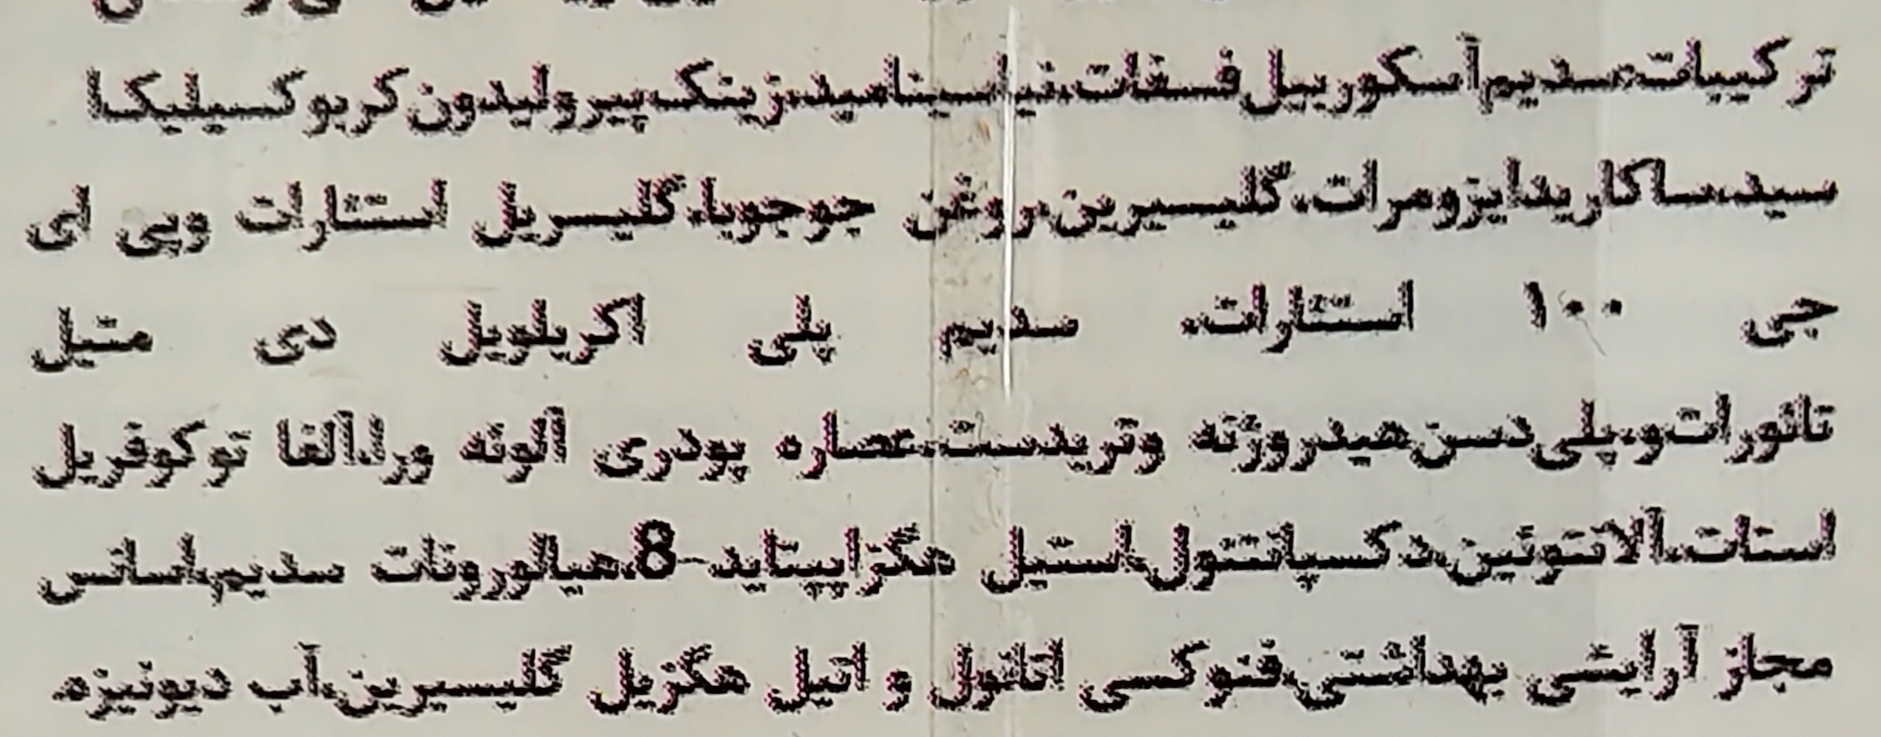 ترکیبات:سدیم آسکوربیل فسفات،نیاسینامید،زینک پیرولیدون کربوکسیلیک ا
سید،ساکاریدایزومرات،گلیسیرین،روغن جوجوبا،گلیسریل استئارات وپی ای
جی ۱۰۰ استئارات، سدیم پلی اکریلویل دی متیل
تائورات،و،پلی دسن هیدروژنه وتریدست،عصاره پودری آلوئه ورا،آلفا توکوفریل
استات،آلانتوئین،دکسپانتنول،استیل هگزاپپتاید-8،هیالورونات سدیم،اسانس
مجاز آرایشی بهداشتی،فنوکسی اتانول و اتیل هگزیل گلیسیرین،آب دیونیزه.